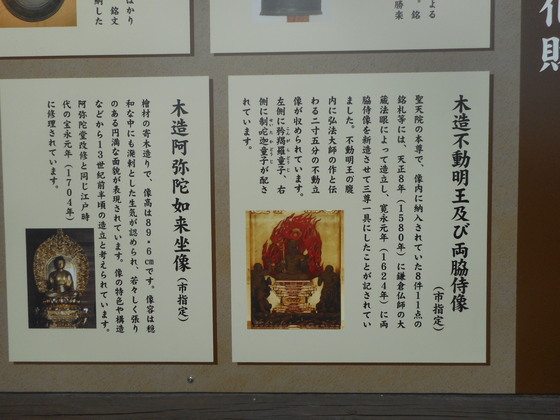 木造不動明王及び両脇侍像
（市指定）
聖天院の本尊で、像内に納入されていた8件11点の
銘札等には、天正8年（1580年）に鎌倉仏師の大
蔵法眼によって造立し、寛永元年（1624年）に両
脇侍像を新造させて三尊一具にしたことが記されてい
ました。不動明王の腹
内に弘法大師の作と伝
わる二寸五分の不動立
像が収められています。
左側に矜羯羅童子、右
側に制吒迦童子が配さ
れています。
木造阿弥陀如来坐像（市指定）
檜材の寄木造りで、像高は89・6㎝です。像容は穏
和な中にも溌剌とした生気が認められ、若々しく張り
のある円満な面貌が表現されています。像の特色や構造
などから13世紀前半頃の造立と考えられています。
阿弥陀堂改修と同じ江戸時
代の宝永元年（1704年）
に修理されています。